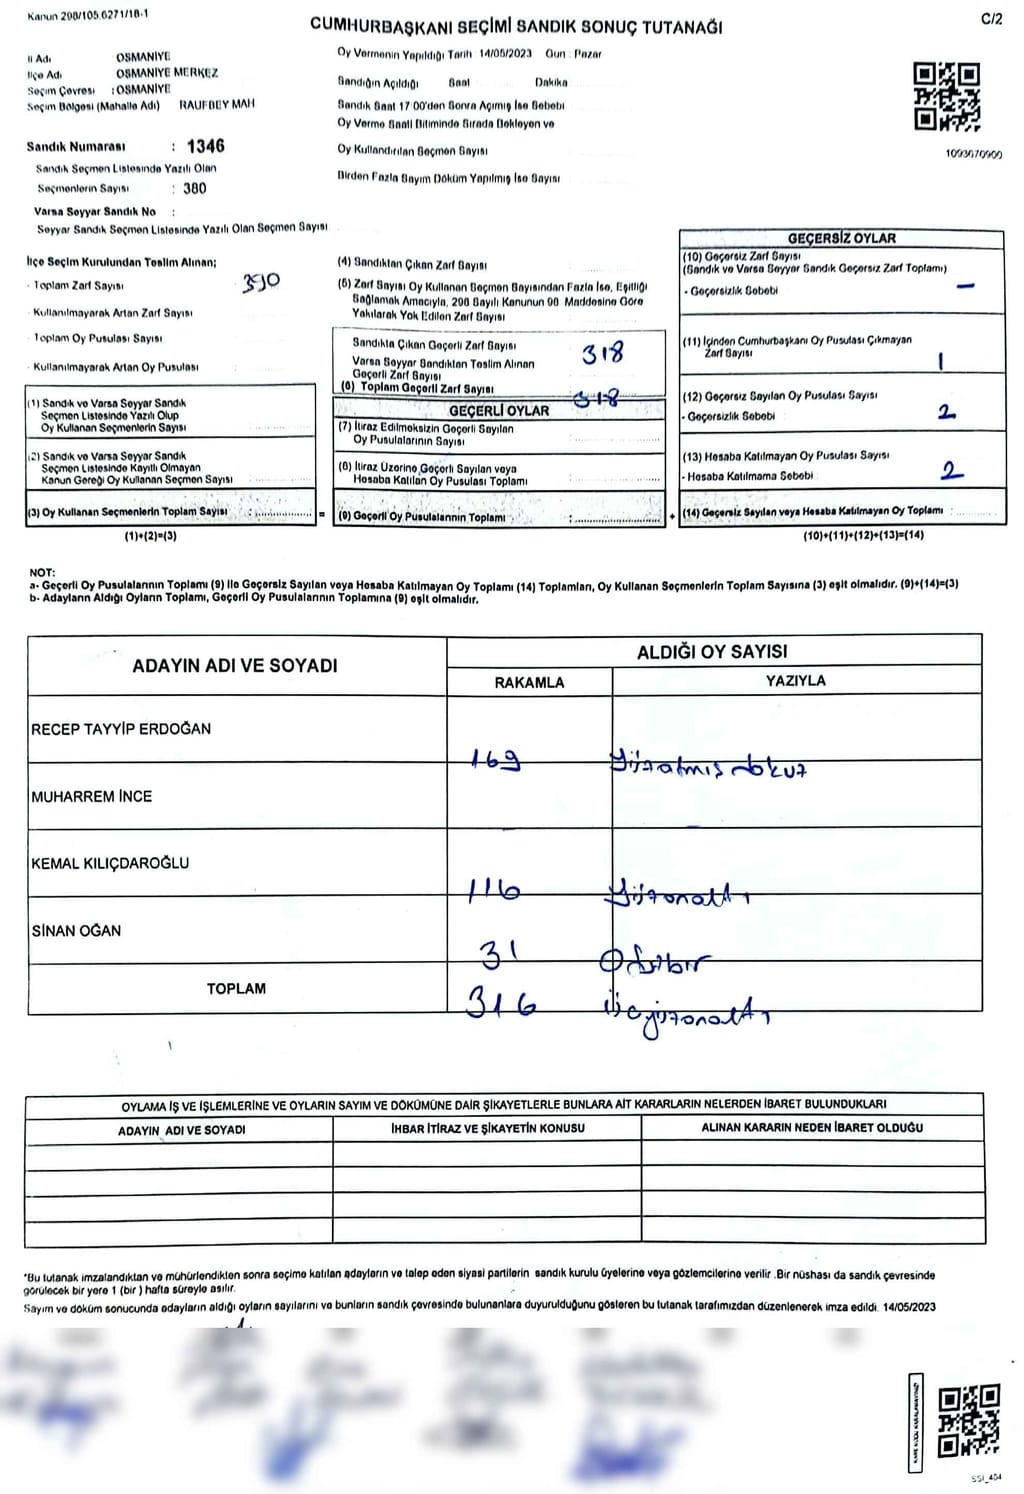 Kanun 298/105.6271/18-1
C/2
CUMHURBAŞKANI SEÇİMİ SANDIK SONUÇ TUTANAĞI
İl Adı OSMANİYE
İlçe Adı OSMANİYE MERKEZ
Seçim Çevresi : OSMANİYE
Seçim Bölgesi (Mahalle Adı) RAUFBEY MAH
Sandık Numarası : 1346
Sandık Seçmen Listesinde Yazılı Olan
Seçmenlerin Sayısı : 380
Varsa Seyyar Sandık No :
Seyyar Sandık Seçmen Listesinde Yazılı Olan Seçmen Sayısı
Oy Vermenin Yapıldığı Tarih 14/05/2023 Gün : Pazar
Sandığın Açıldığı Saat Dakika
Sandık Saat 17 00'den Sonra Açımış İse Sebebi
Oy Verme Saati Bitiminde Sırada Bekleyen ve
Oy Kullandırılan Seçmen Sayısı
Birden Fazla Sayım Döküm Yapılmış İse Sayısı
1093670900
İlçe Seçim Kurulundan Teslim Alınan;
- Toplam Zarf Sayısı 390
- Kullanılmayarak Artan Zarf Sayısı
- Toplam Oy Pusulası Sayısı
- Kullanılmayarak Artan Oy Pusulası
(1) Sandık ve Varsa Seyyar Sandık
Seçmen Listesinde Yazılı Olup
Oy Kullanan Seçmenlerin Sayısı
(2) Sandık ve Varsa Seyyar Sandık
Seçmen Listesinde Kayıtlı Olmayan
Kanun Gereği Oy Kullanan Seçmen Sayısı
(3) Oy Kullanan Seçmenlerin Toplam Sayısı : =
(1)+(2)=(3)
(4) Sandıktan Çıkan Zarf Sayısı
(5) Zarf Sayısı Oy Kullanan Seçmen Sayısından Fazla İse, Eşitliği
Sağlamak Amacıyla, 298 Sayılı Kanunun 98 Maddesine Göre
Yakılarak Yok Edilen Zarf Sayısı
Sandıkta Çıkan Geçerli Zarf Sayısı 318
Varsa Seyyar Sandıktan Teslim Alınan
Geçerli Zarf Sayısı
(6) Toplam Geçerli Zarf Sayısı 318
GEÇERLİ OYLAR
(7) İtiraz Edilmeksizin Geçerli Sayılan
Oy Pusulalarının Sayısı
(8) İtiraz Üzerine Geçerli Sayılan veya
Hesaba Katılan Oy Pusulası Toplamı
(9) Geçerli Oy Pusulalarının Toplamı : +
GEÇERSİZ OYLAR
(10) Geçersiz Zarf Sayısı
(Sandık ve Varsa Seyyar Sandık Geçersiz Zarf Toplamı)
- Geçersizlik Sebebi –
(11) İçinden Cumhurbaşkanı Oy Pusulası Çıkmayan
Zarf Sayısı 1
(12) Geçersiz Sayılan Oy Pusulası Sayısı
- Geçersizlik Sebebi 2
(13) Hesaba Katılmayan Oy Pusulası Sayısı
- Hesaba Katılmama Sebebi 2
(14) Geçersiz Sayılan veya Hesaba Katılmayan Oy Toplamı :
(10)+(11)+(12)+(13)=(14)
NOT:
a- Geçerli Oy Pusulalarının Toplamı (9) ile Geçersiz Sayılan veya Hesaba Katılmayan Oy Toplamı (14) Toplamları, Oy Kullanan Seçmenlerin Toplam Sayısına (3) eşit olmalıdır. (9)+(14)=(3)
b- Adayların Aldığı Oyların Toplamı, Geçerli Oy Pusulalarının Toplamına (9) eşit olmalıdır.
ADAYIN ADI VE SOYADI
ALDIĞI OY SAYISI
RAKAMLA YAZIYLA
RECEP TAYYİP ERDOĞAN 169 Yüzatmış dokuz
MUHARREM İNCE
KEMAL KILIÇDAROĞLU 116 Yüzonaltı
SİNAN OĞAN 31 Otuzbir
TOPLAM 316 üçyüzonaltı
OYLAMA İŞ VE İŞLEMLERİNE VE OYLARIN SAYIM VE DÖKÜMÜNE DAİR ŞİKAYETLERLE BUNLARA AİT KARARLARIN NELERDEN İBARET BULUNDUKLARI
ADAYIN ADI VE SOYADI İHBAR İTİRAZ VE ŞİKAYETİN KONUSU ALINAN KARARIN NEDEN İBARET OLDUĞU
*Bu tutanak imzalandıktan ve mühürlendikten sonra seçime katılan adayların ve talep eden siyasi partilerin sandık kurulu üyelerine veya gözlemcilerine verilir .Bir nüshası da sandık çevresinde
görülecek bir yere 1 (bir ) hafta süreyle asılır.
Sayım ve döküm sonucunda adayların aldığı oyların sayılarını ve bunların sandık çevresinde bulunanlara duyurulduğunu gösteren bu tutanak tarafımızdan düzenlenerek imza edildi. 14/05/2023
SSI_404